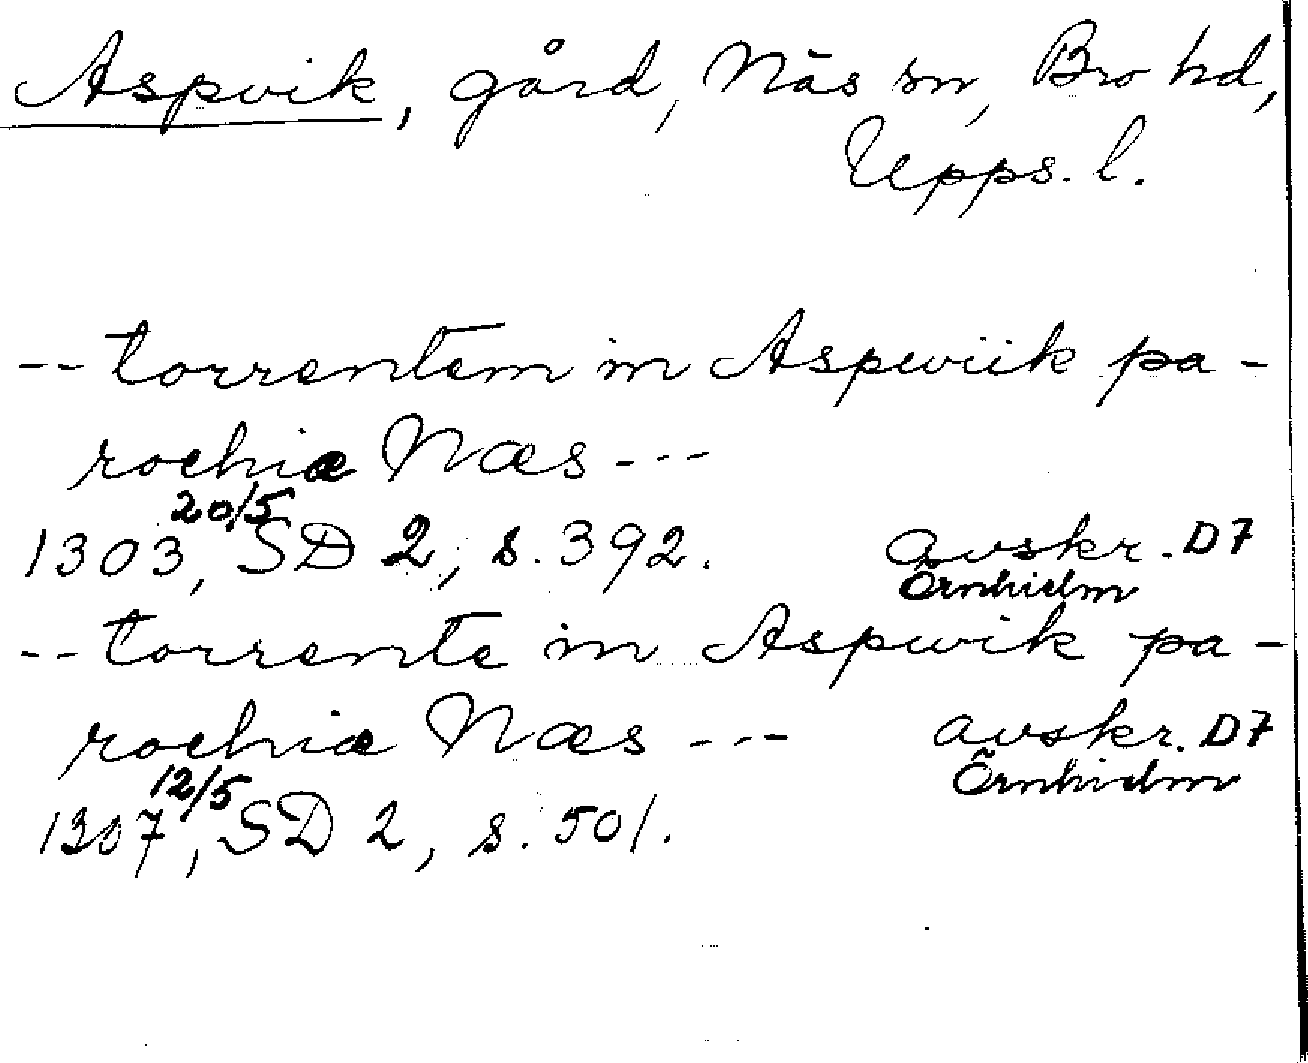 Aspvik, gård, Näs sn, Bro hd,
Upps. l.
-- torrentem in Aspwiik pa-
rochiæ Næs ---
1303 20/5, SD 2, s. 392. avskr. D7
Örnhielm
-- torrente in Aspwik pa-
rochiæ Næs --- avskr. D7
Örnhielm
1307 12/5, SD 2, s. 501.